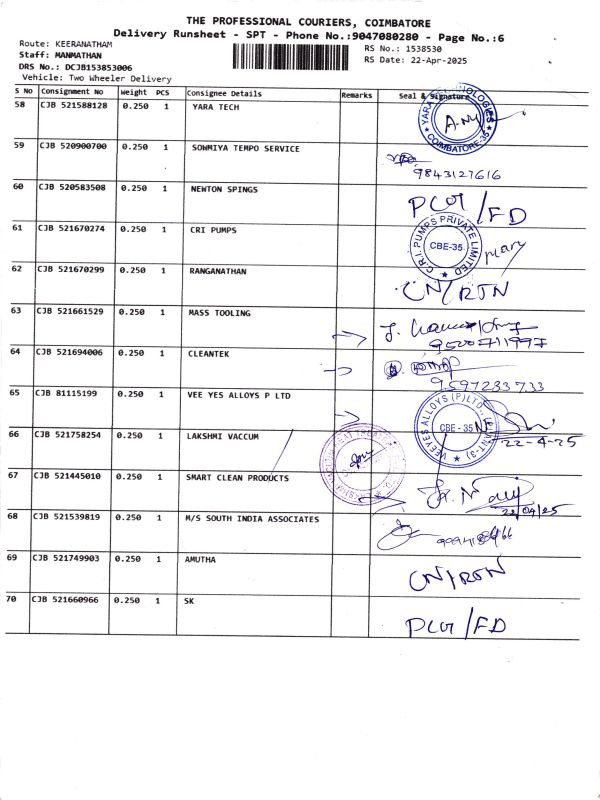 THE PROFESSIONAL COURIERS, COIMBATORE
Delivery Runsheet - SPT - Phone No.:9047080280 - Page No.:6
Route: KEERANATHAM
RS No.: 1538530
Staff: MANMATHAN
RS Date: 22-Apr-2025
DRS No.: DCJB153853006
Vehicle: Two Wheeler Delivery
S No Consignment No Weight PCS Consignee Details Remarks Seal & Signature
58 CJB 521588128 0.250 1 YARA TECH
YARA TECHNOLOGIES COIMBATORE-35
59 CJB 520900700 0.250 1 SOWMIYA TEMPO SERVICE
9843127616
60 CJB 520583508 0.250 1 NEWTON SPINGS PLOT/FD
61 CJB 521670274 0.250 1 CRI PUMPS
C.R.I. PUMPS PRIVATE LIMITED CBE-35
62 CJB 521670299 0.250 1 RANGANATHAN CN/RTN
63 CJB 521661529 0.250 1 MASS TOOLING
9500711997
64 CJB 521694006 0.250 1 CLEANTEK
9597233733
65 CJB 81115199 0.250 1 VEE YES ALLOYS P LTD
VEEYES ALLOYS (P) LTD., (PLANT-3) CBE - 35
22-4-25
66 CJB 521758254 0.250 1 LAKSHMI VACCUM
67 CJB 521445010 0.250 1 SMART CLEAN PRODUCTS
22/04/25
68 CJB 521539819 0.250 1 M/S SOUTH INDIA ASSOCIATES
69 CJB 521749903 0.250 1 AMUTHA CN/RTN
70 CJB 521660966 0.250 1 SK PLOT/FD